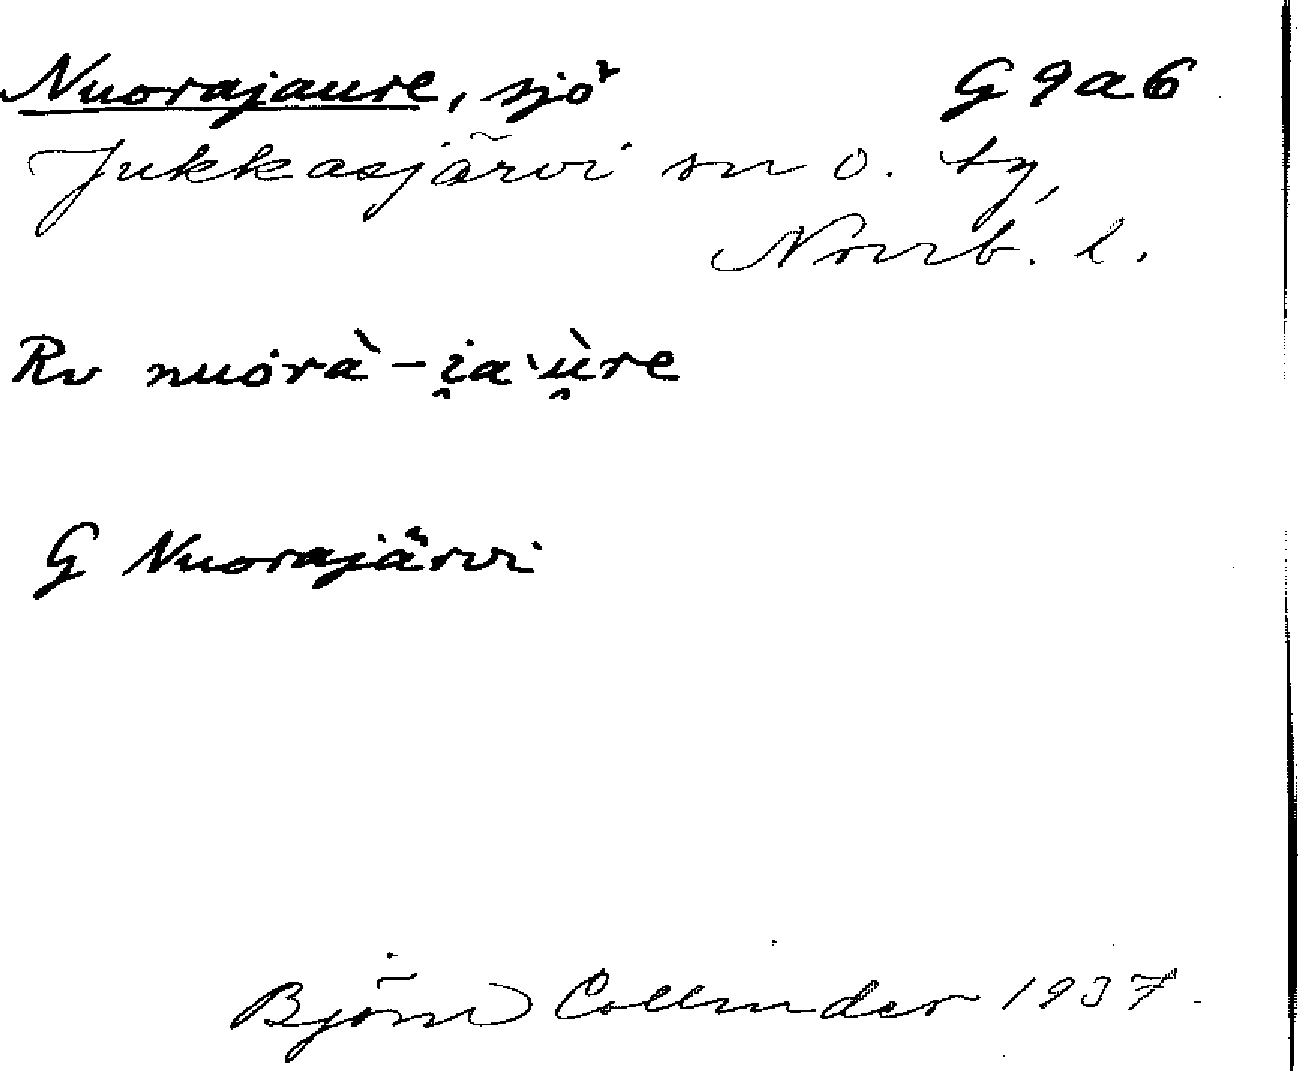 Nuorajaure, sjö G9a6
Jukkasjärvi sn o. tg,
Norrb. l.
Rv nuȯrà-i̯aˋù̯re
G Nuorajärvi
Björn Collinder 1937.